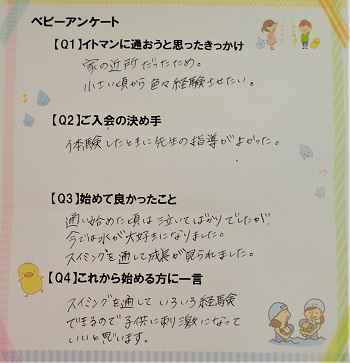 ベビーアンケート
【Q1】イトマンに通おうと思ったきっかけ
家の近所だったため。
小さい頃から色々経験させたい。
【Q2】ご入会の決め手
体験したときに先生の指導がよかった。
【Q3】始めて良かったこと
通い始めた頃は泣いてばかりでしたが
今では水が大好きになりました。
スイミングを通して成長が見られました。
【Q4】これから始める方に一言
スイミングを通していろいろ経験
できるので子供に刺激になって
いいと思います。